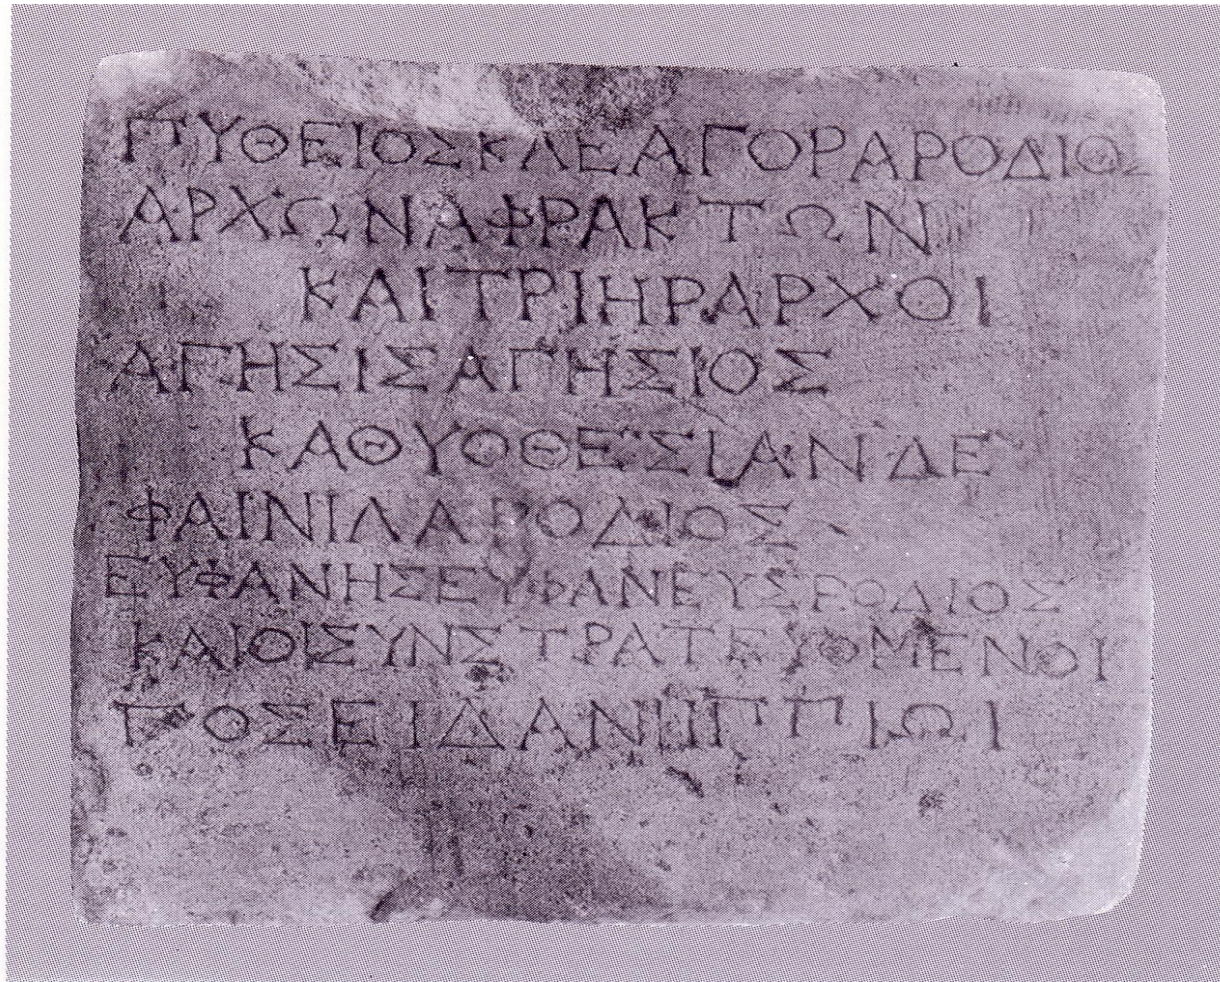 ΠΥΘΕΙΟΣΚΛΕΑΓΟΡΑΡΟΔΙΟΣ
ΑΡΧΩΝΑΦΡΑΚΤΩΝ
ΚΑΙΤΡΙΗΡΑΡΧΟΙ
ΑΓΗΣΙΣΑΓΗΣΙΟΣ
ΚΑΘΥΟΘΕΣΙΑΝΔΕ
ΦΑΙΝΙΛΑΡΟΔΙΟΣ
ΕΥΦΑΝΗΣΕΥΦΑΝΕΥΣΡΟΔΙΟΣ
ΚΑΙΟΙΣΥΝΣΤΡΑΤΕΥΟΜΕΝΟΙ
ΠΟΣΕΙΔΑΝΙΙΠΠΙΩΙ